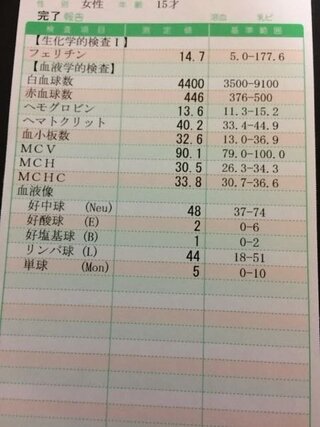 性 別 女性 年 齢 15才
完了 報告 溶血 乳ビ
検査項目 測定値 基準範囲
【生化学的検査Ⅰ】
フェリチン 14.7 5.0-177.6
【血液学的検査】
白血球数 4400 3500-9100
赤血球数 446 376-500
ヘモグロビン 13.6 11.3-15.2
ヘマトクリット 40.2 33.4-44.9
血小板数 32.6 13.0-36.9
MCV 90.1 79.0-100.0
MCH 30.5 26.3-34.3
MCHC 33.8 30.7-36.6
血液像
好中球 (Neu) 48 37-74
好酸球 (E) 2 0-6
好塩基球 (B) 1 0-2
リンパ球 (L) 44 18-51
単球 (Mon) 5 0-10